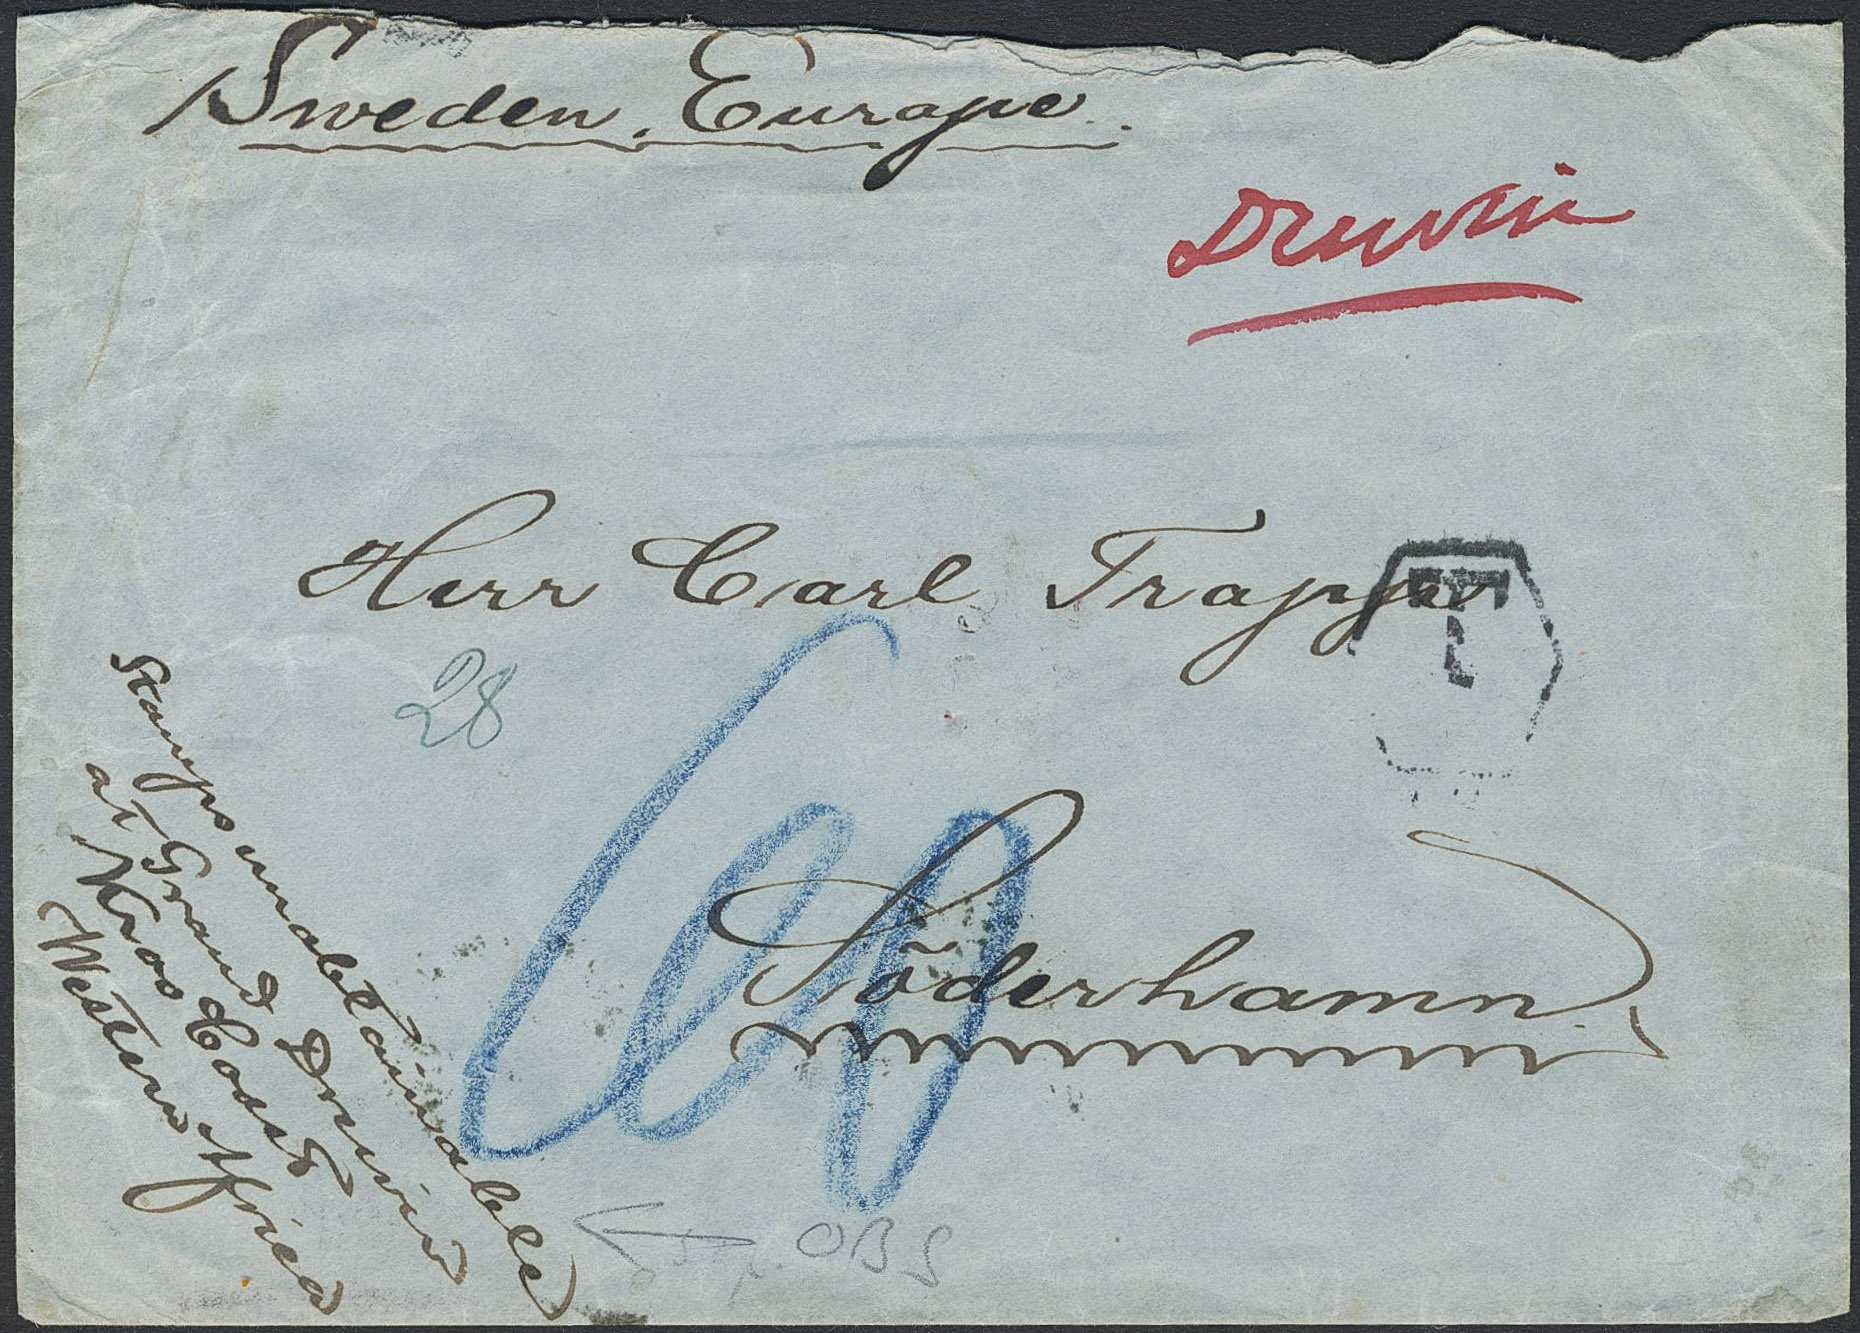 Sweden. Europe.
Drewin
Herr Carl Trappe
T
28
60
Söderhamn.
Stamps unobtainable
at Grand Drewin
Kroo Coast
Western Africa
OBS